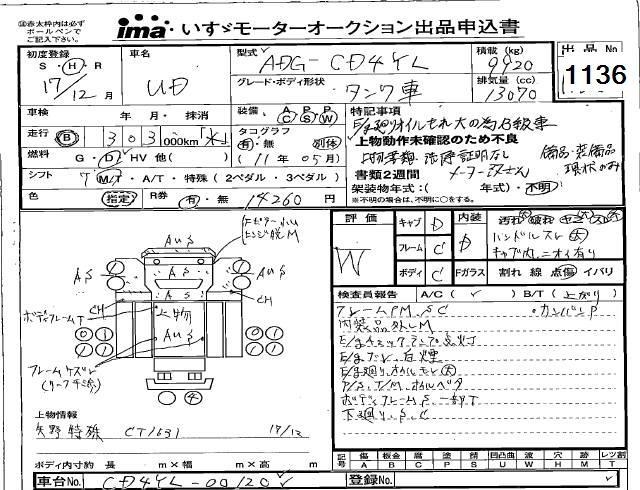 ㊟赤太枠内は必ず
ボールペンで
ご記入下さい。
ima いすゞモーターオークション出品申込書
初度登録
S・H・R
17/12月
車名
UD
型式
ADG-CD4YL
グレード・ボディ形状
タンク車
積載 (kg)
9920
排気量 (cc)
13070
出品No
1136
車検 年 月・抹消
装備 A/C P/S P/W
特記事項
E/g廻りオイルもれ大の為B級車
上物動作未確認のため不良
上物書類 洗浄証明なし
書類2週間
メーカー 矢野さん
備品・装備品
現状のみ
架装物年式:( 年式)・不明
※不明の場合は、不明に○をする。
走行 B 303,000km
タコグラフ
有・無 別体
(11年05月)
燃料 G・D・HV 他( )
シフト 7 M/T・A/T・特殊(2ペダル・3ペダル)
色 指定 R券 有・無 14260円
評価
W
キャブ D
フレーム C
ボディ C
内装 D
Fガラス
汚れ 破れ ヤニ スレ
ハンドルスレ 大
キャブ内ニオイ有り
割れ 線 点傷 イバリ
検査員報告 A/C( ✓ ) B/T( 上がり )
フレームPM、S、C ・カンバンP
内装品外しM
E/gチェックランプ点灯
E/gブレ、白煙
E/g廻りオイルモレ大
P/S、T/M、オイルベタ
ボディフレームS、一部T
下廻り、S、C
AuS
AuS
AuS
AS
AS
AS
CH
CH
ヒンジ脱M
ボディフレームT
上物
AuS
フレームサビS
上物情報
矢野特殊 CT1631 17/12
ボディ内寸約 長 m×幅 m×高 m
記号 傷A 板金B 腐C 塗P 錆S 凹凸曲U 凹凸W 穴H 跡M レツ割T
車台No. CD4YL-00120
登録No.